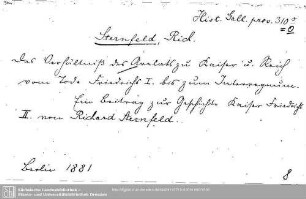 Hist. Gall. prov. 310 s
= 0
Sternfeld, Rich.
Das Verhältniß des Arelats zu Kaiser u. Reich
vom Tode Friedrichs I. bis zum Interregnum.
Ein Beitrag zur Geschichte Kaiser Friedrichs
II. von Richard Sternfeld.
Berlin 1881
8